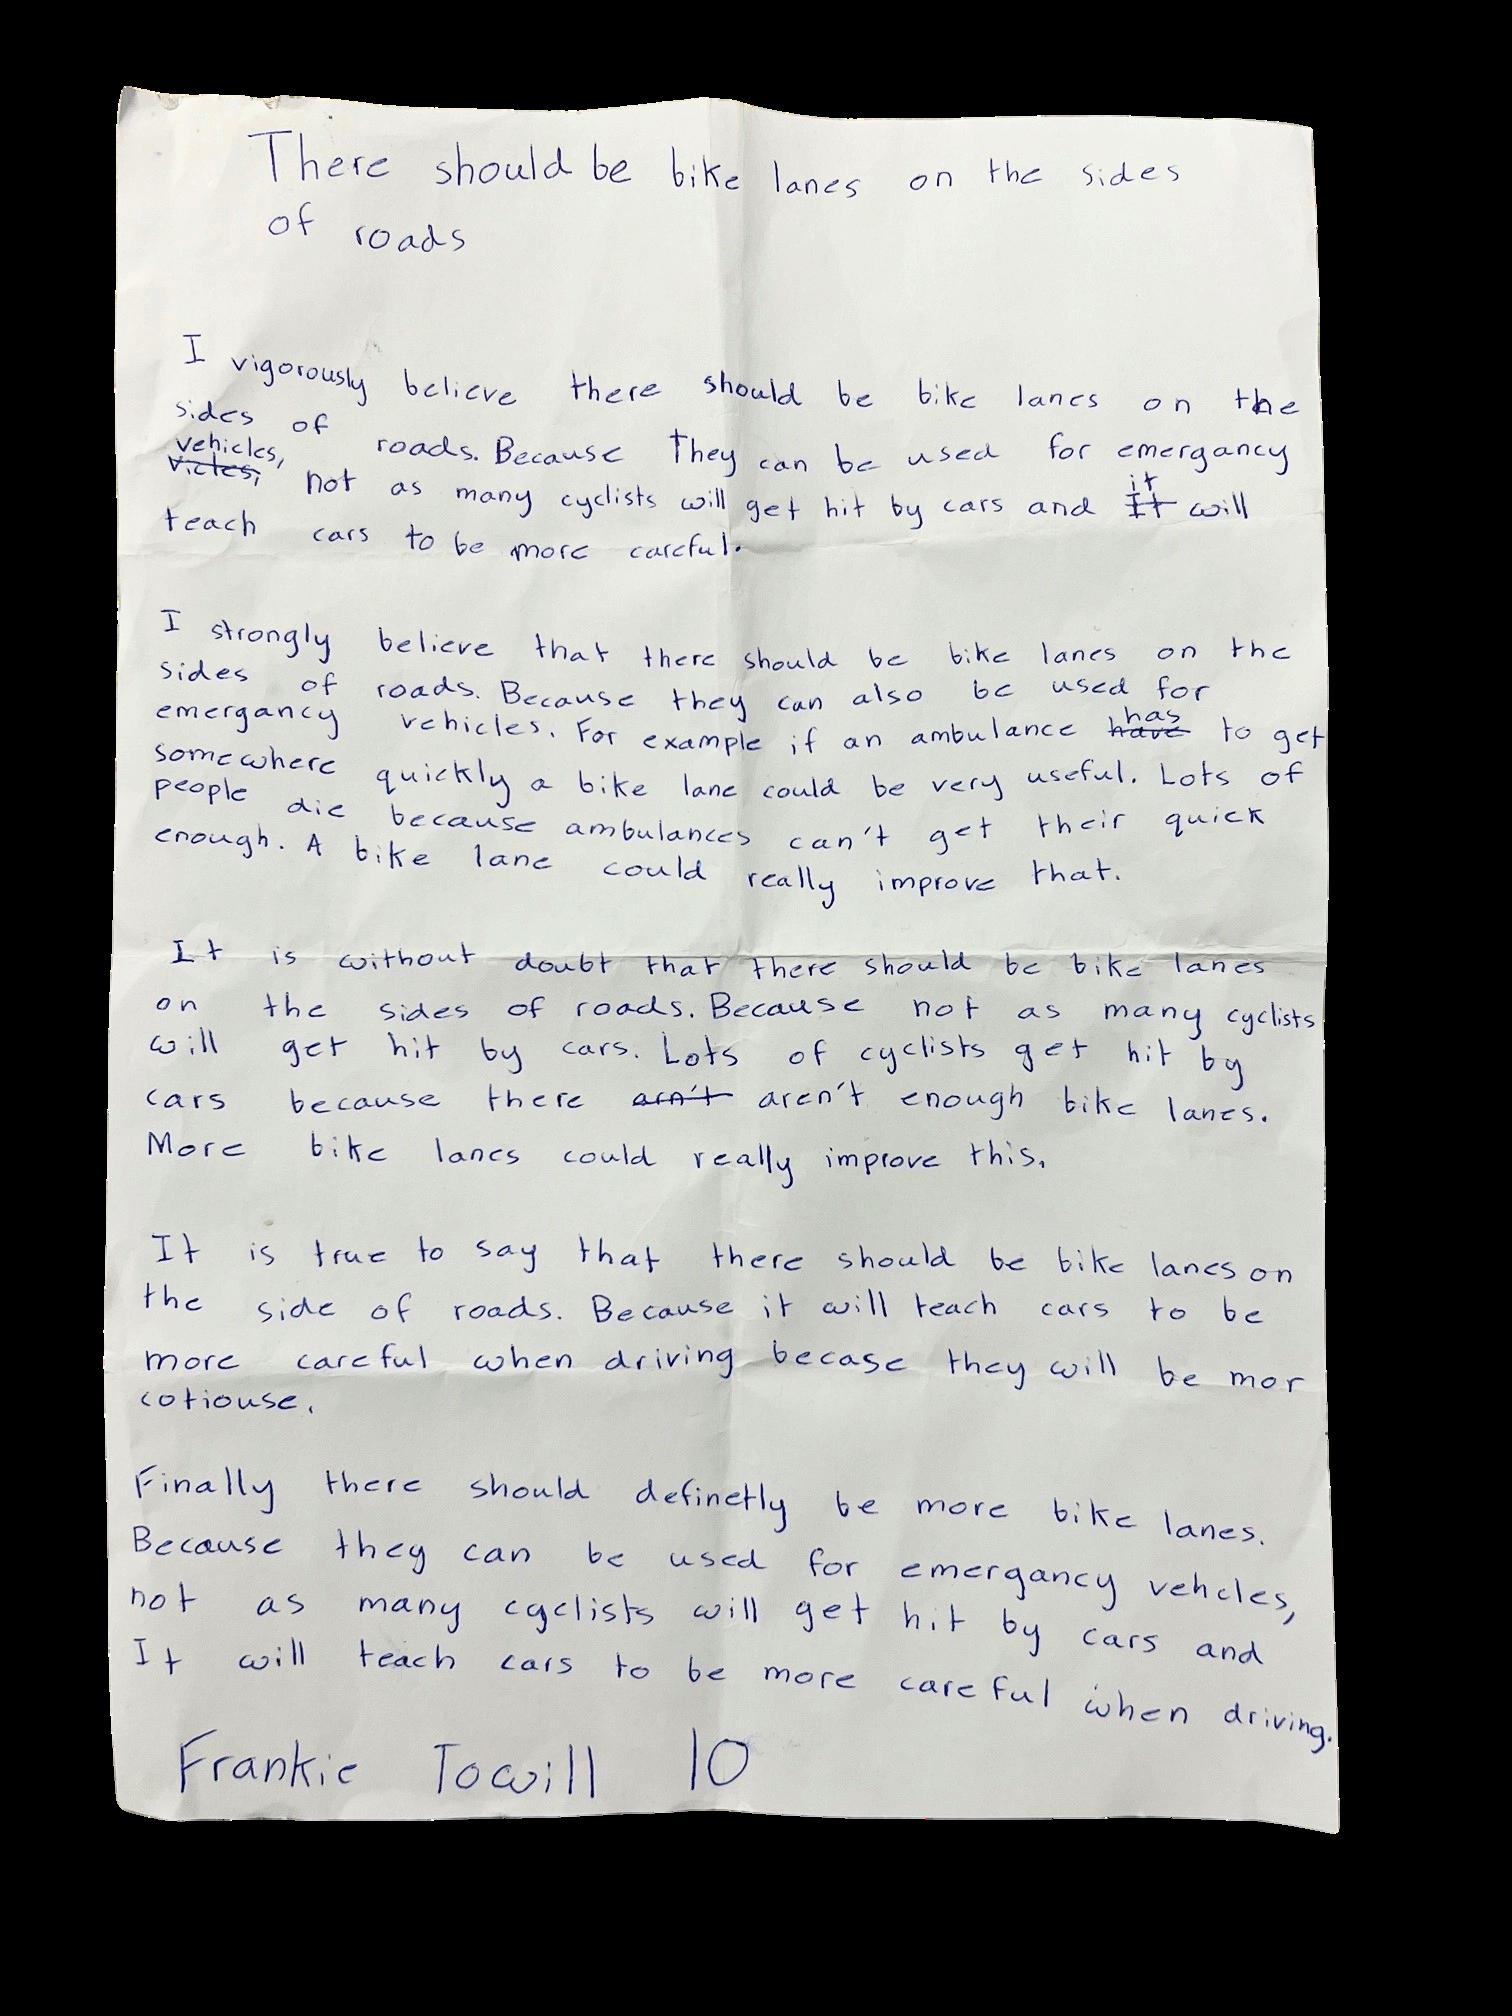 There should be bike lanes on the sides
of roads
I vigorously believe there should be bike lanes on the
sides of roads. Because They can be used for emergancy
vehicles, victes, not as many cyclists will get hit by cars and it It will
teach cars to be more careful.
I strongly believe that there should be bike lanes on the
sides of roads. Because they can also be used for
emergancy vehicles. For example if an ambulance has have to get
somewhere quickly a bike lane could be very useful. Lots of
people die because ambulances can't get their quick
enough. A bike lane could really improve that.
It is without doubt that there should be bike lanes
on the sides of roads. Because not as many cyclists
will get hit by cars. Lots of cyclists get hit by
cars because there arn't aren't enough bike lanes.
More bike lanes could really improve this.
It is true to say that there should be bike lanes on
the side of roads. Because it will teach cars to be
more careful when driving becase they will be mor
cotiouse.
Finally there should definetly be more bike lanes.
Because they can be used for emergancy vehcles,
not as many cyclists will get hit by cars and
It will teach cars to be more careful when driving.
Frankie Towill 10